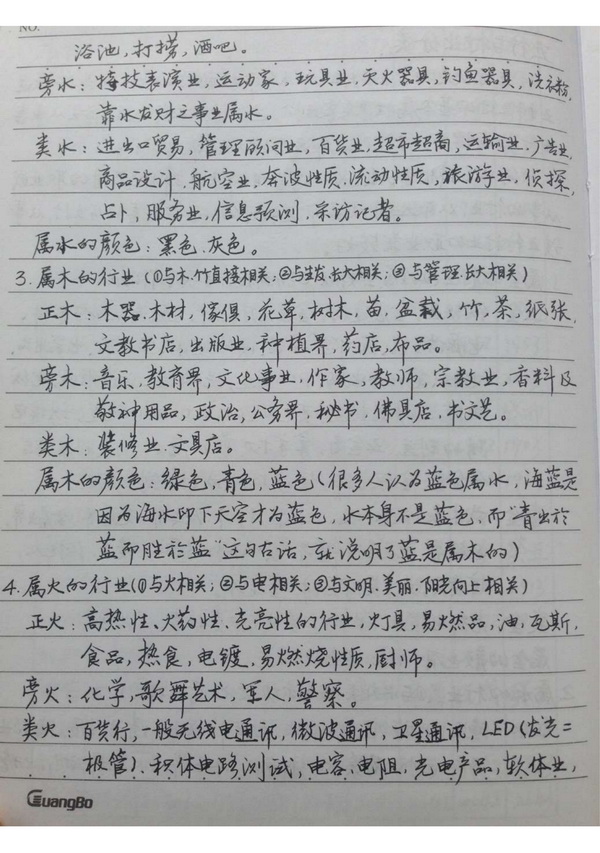 NO.
浴池,打捞,酒吧。
旁水:特技表演业,运动家,玩具业,灭火器具,钓鱼器具,洗衣粉,
靠水发财之事业属水。
类水:进出口贸易,管理顾问业,百货业,超市超商,运输业,广告业,
商品设计,航空业,奔波性质.流动性质,旅游业,侦探,
占卜,服务业,信息预测,采访记者。
属水的颜色:黑色.灰色。
3.属木的行业(①与木.竹直接相关;②与生发.长大相关;③与管理.长大相关)
正木:木器.木材,傢俱,花草,树木,苗,盆栽,竹,茶,纸张,
文教书店,出版业,种植界,药店,布品。
旁木:音乐,教育界,文化事业,作家,教师,宗教业,香料及
敬神用品,政治,公务界,秘书.佛具店.书文艺。
类木:装修业.文具店。
属木的颜色:绿色,青色,蓝色(很多人认为蓝色属水,海蓝是
因为海水印下天空才为蓝色,水本身不是蓝色,而“青出於
蓝而胜於蓝”这句古话,就说明了蓝是属木的)
4.属火的行业(①与火相关;②与电相关;③与文明.美丽.阳光向上相关)
正火:高热性、火药性、光亮性的行业,灯具,易燃品,油,瓦斯,
食品,热食,电镀.易燃烧性质,厨师。
旁火:化学,歌舞艺术,军人,警察。
类火:百货行,一般无线电通讯,微波通讯,卫星通讯,LED(发光二
极管).积体电路测试,电容.电阻.光电产品,软体业,
GuangBo